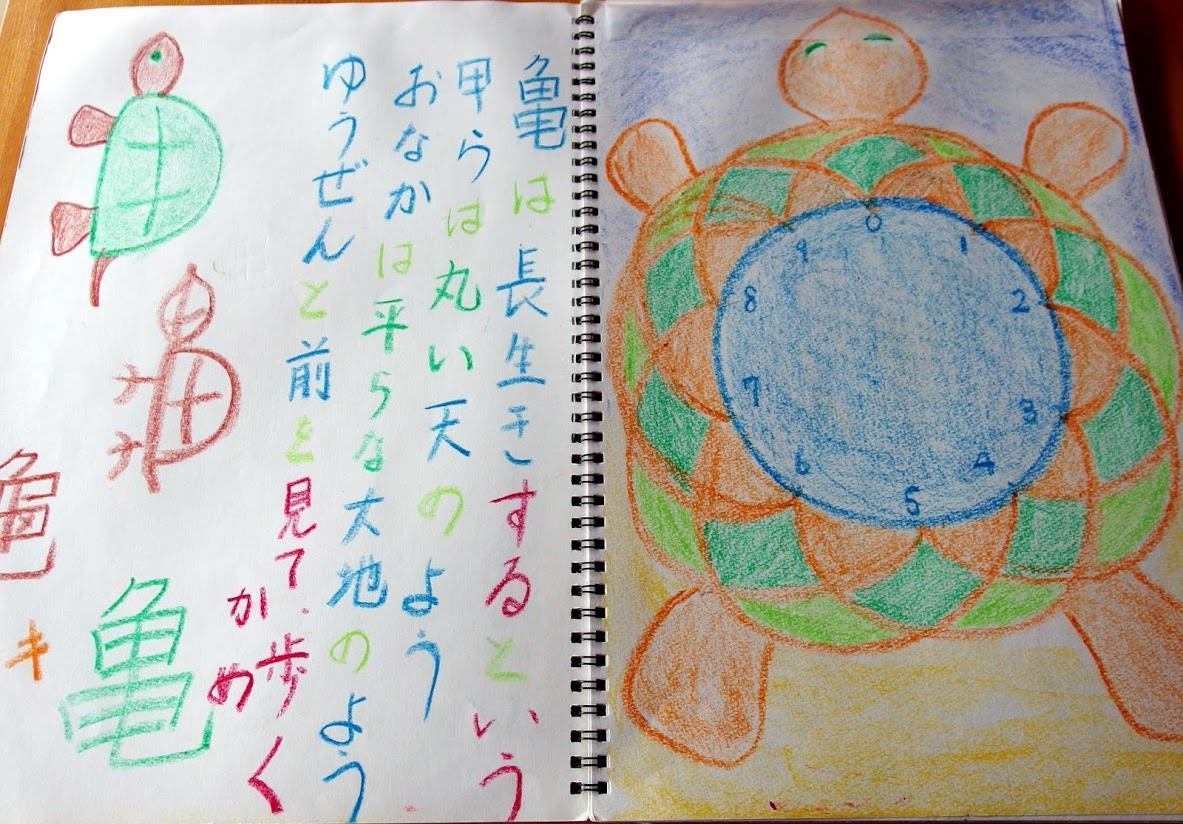 亀は長生きするという
甲らは丸い天のよう
おなかは平らな大地のよう
ゆうぜんと前を見て歩く
かめ
亀
亀
キ
0
1
2
3
4
5
6
7
8
9